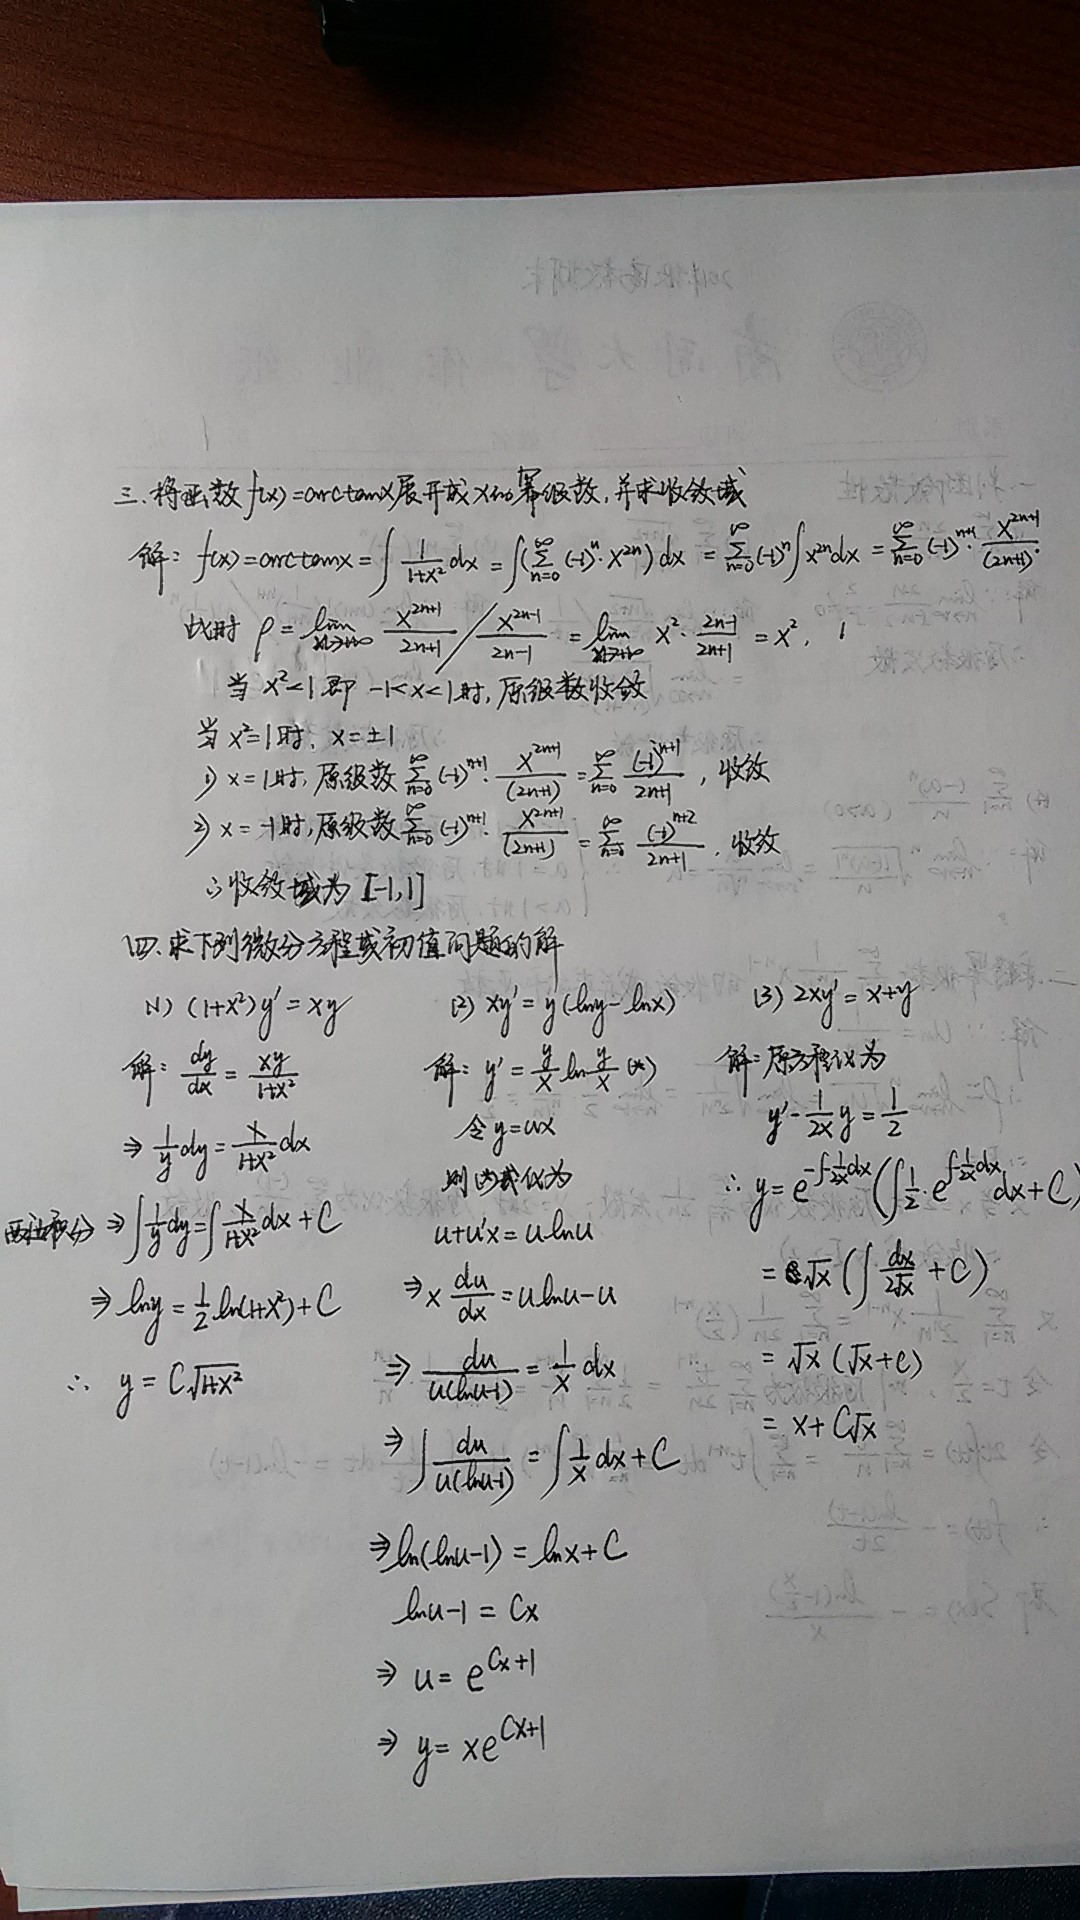 三.将函数f(x)=arctanx展开成x的幂级数,并求收敛域
解: f(x)=arctanx=∫ 1/(1+x²) dx = ∫(∑_{n=0}^{∞} (-1)^n · x^{2n}) dx = ∑_{n=0}^{∞} (-1)^n ∫ x^{2n} dx = ∑_{n=0}^{∞} (-1)^{n+1} · x^{2n+1}/(2n+1).
此时 ρ = lim x^{2n+1}/(2n+1) / x^{2n-1}/(2n-1) = lim x² · (2n-1)/(2n+1) = x²,
当 x²<1 即 -1<x<1时,原级数收敛
当 x²=1时, x=±1
1) x=1时,原级数 ∑_{n=0}^{∞} (-1)^{n+1} · x^{2n+1}/(2n+1) = ∑_{n=0}^{∞} (-1)^{n+1}/(2n+1), 收敛
2) x=-1时,原级数 ∑_{n=0}^{∞} (-1)^{n+1} · x^{2n+1}/(2n+1) = ∑_{n=0}^{∞} (-1)^{n+2}/(2n+1), 收敛
∴收敛域为 [-1,1]
四.求下列微分方程或初值问题的解
(1) (1+x²)y′=xy
解: dy/dx = xy/(1+x²)
⇒ 1/y dy = x/(1+x²) dx
两边积分 ⇒ ∫ 1/y dy = ∫ x/(1+x²) dx + C
⇒ lny = 1/2 ln(1+x²)+C
∴ y = C√(1+x²)
(2) xy′=y(lny-lnx)
解: y′ = y/x ln y/x (*)
令 y=ux
则(*)式化为
u+u′x=ulnu
⇒ x du/dx = ulnu-u
⇒ du/(u(lnu-1)) = 1/x dx
⇒ ∫ du/(u(lnu-1)) = ∫ 1/x dx + C
⇒ ln(lnu-1) = lnx+C
lnu-1 = Cx
⇒ u = e^{Cx+1}
⇒ y = xe^{Cx+1}
(3) 2xy′=x+y
解:原方程化为
y′ - 1/(2x) y = 1/2
∴ y = e^{-∫-1/(2x) dx} (∫ 1/2 · e^{∫-1/(2x) dx} dx + C)
= √x (∫ dx/(2√x) + C)
= √x (√x+C)
= x+C√x